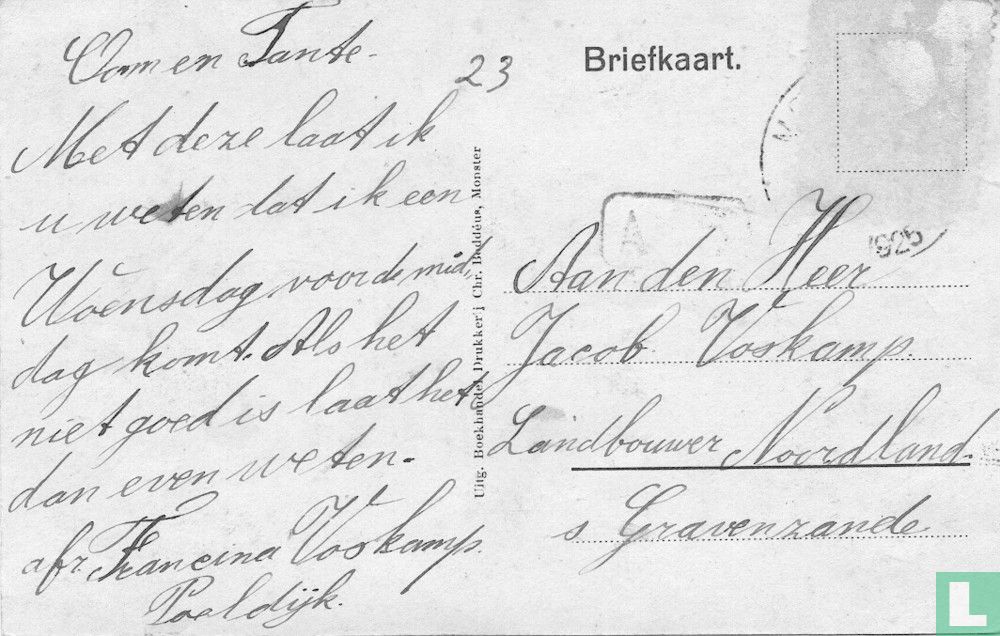 Oom en Tante-
23
Met deze laat ik
u weten dat ik een
Woensdag voor de mid,
dag komt. Als het
niet goed is laat het
dan even weten-
afz. Francina Voskamp.
Poeldijk.
Uitg. Boekhandel Drukkerij Chr. Baddéus, Monster
Briefkaart.
1925
A
Aan den Heer
Jacob Voskamp.
Landbouwer Noordland.
s Gravenzande
L